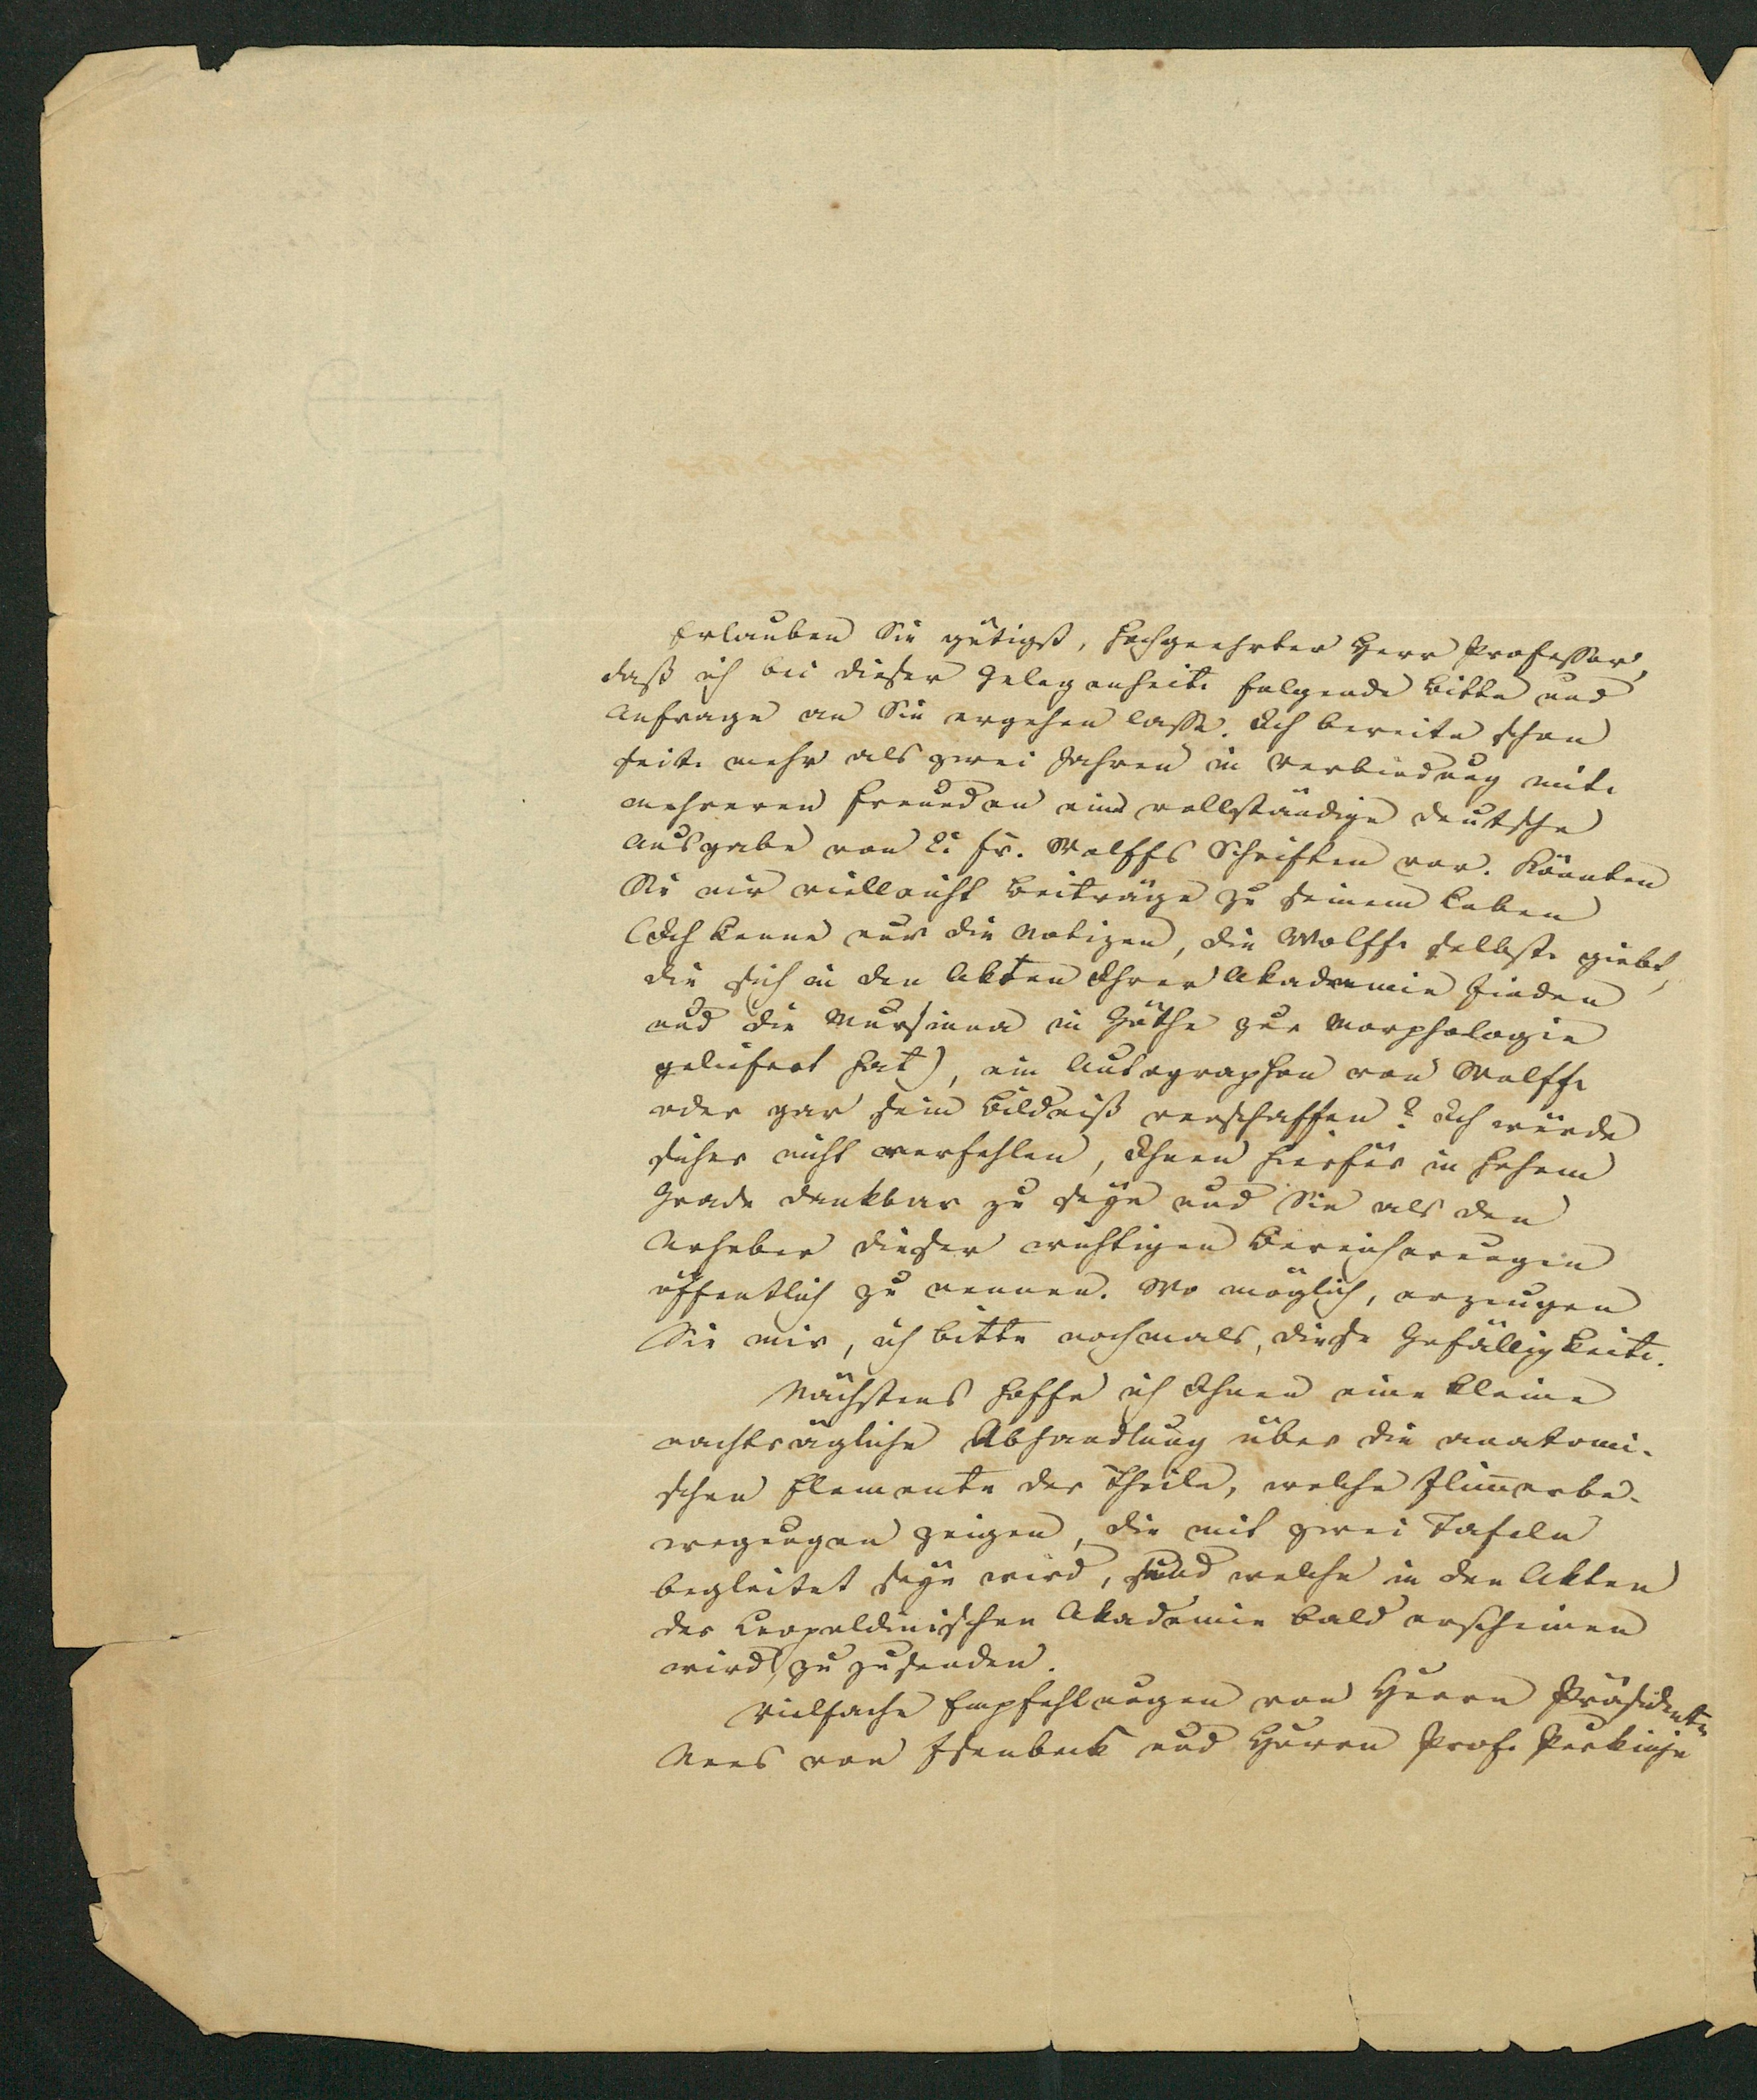 Erlauben Sie gütigst, hochgeehrter Herr Professor,
daß ich bei dieser Gelegenheit folgende Bitte und
Anfrage an Sie ergehen lasse. Ich bereite schon
seit mehr als zwei Jahren in Verbindung mit
mehreren Freunden eine vollständige deutsche
Ausgabe von C. Fr. Wolffs Schriften vor. Könnten
Sie mir vielleicht Beiträge zu seinem Leben
(Ich kenne nur die Notizen, die Wolff selbst giebt,
die sich in den Akten Ihrer Akademie finden
und die Mursinna in Göthe zur Morphologie
geliefert hat), ein Autographon von Wolff
oder gar sein Bildniß verschaffen? Ich würde
sicher nicht verfehlen, Ihnen hierfür in hohem
Grade dankbar zu seyn und Sie als den
Urheber dieser wichtigen Bereicherungen
öffentlich zu nennen. Wo möglich, erzeugen
Sie mir, ich bitte nochmals, diese Gefälligkeit.
Nächstens hoffe ich Ihnen eine kleine
nachträgliche Abhandlung über die anatomi-
schen Elemente der Theile, welche Flim̅erbe-
wegungen zeigen, die mit zwei Tafeln
begleitet seyn wird, und welche in den Akten
der Leopoldinischen Akademie bald erscheinen
wird, zu zusenden.
Vielfache Empfehlungen von Herrn Präsidenten
Nees von Esenbeck und Herrn Prof. Purkinje